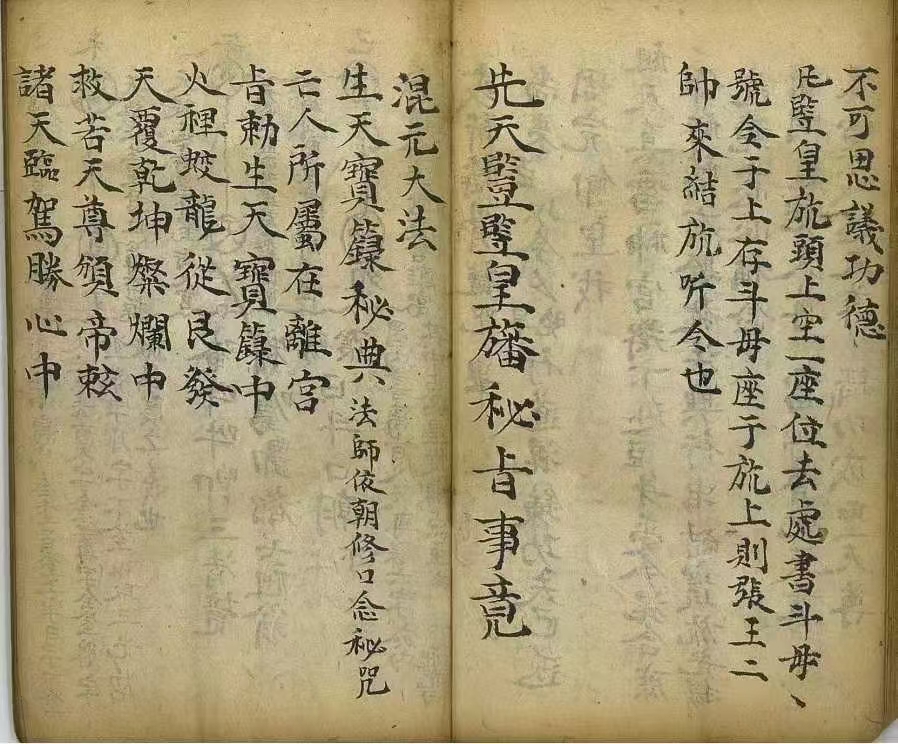 不可思議功德
凡豎皇旂頭上空一座位去處書斗母丶
號令于上存斗母座于旂上則張王二
帥來結旂听令也
先天豎豎皇旛秘旨事竟
混元大法
生天寶籙秘典 法師依朝修口念秘咒
亡人所屬在離宮
旨勅生天寶籙中
火裡蛟龍從艮發
天覆乾坤燦爛中
救苦天尊頒帝敕
諸天臨駕勝心中